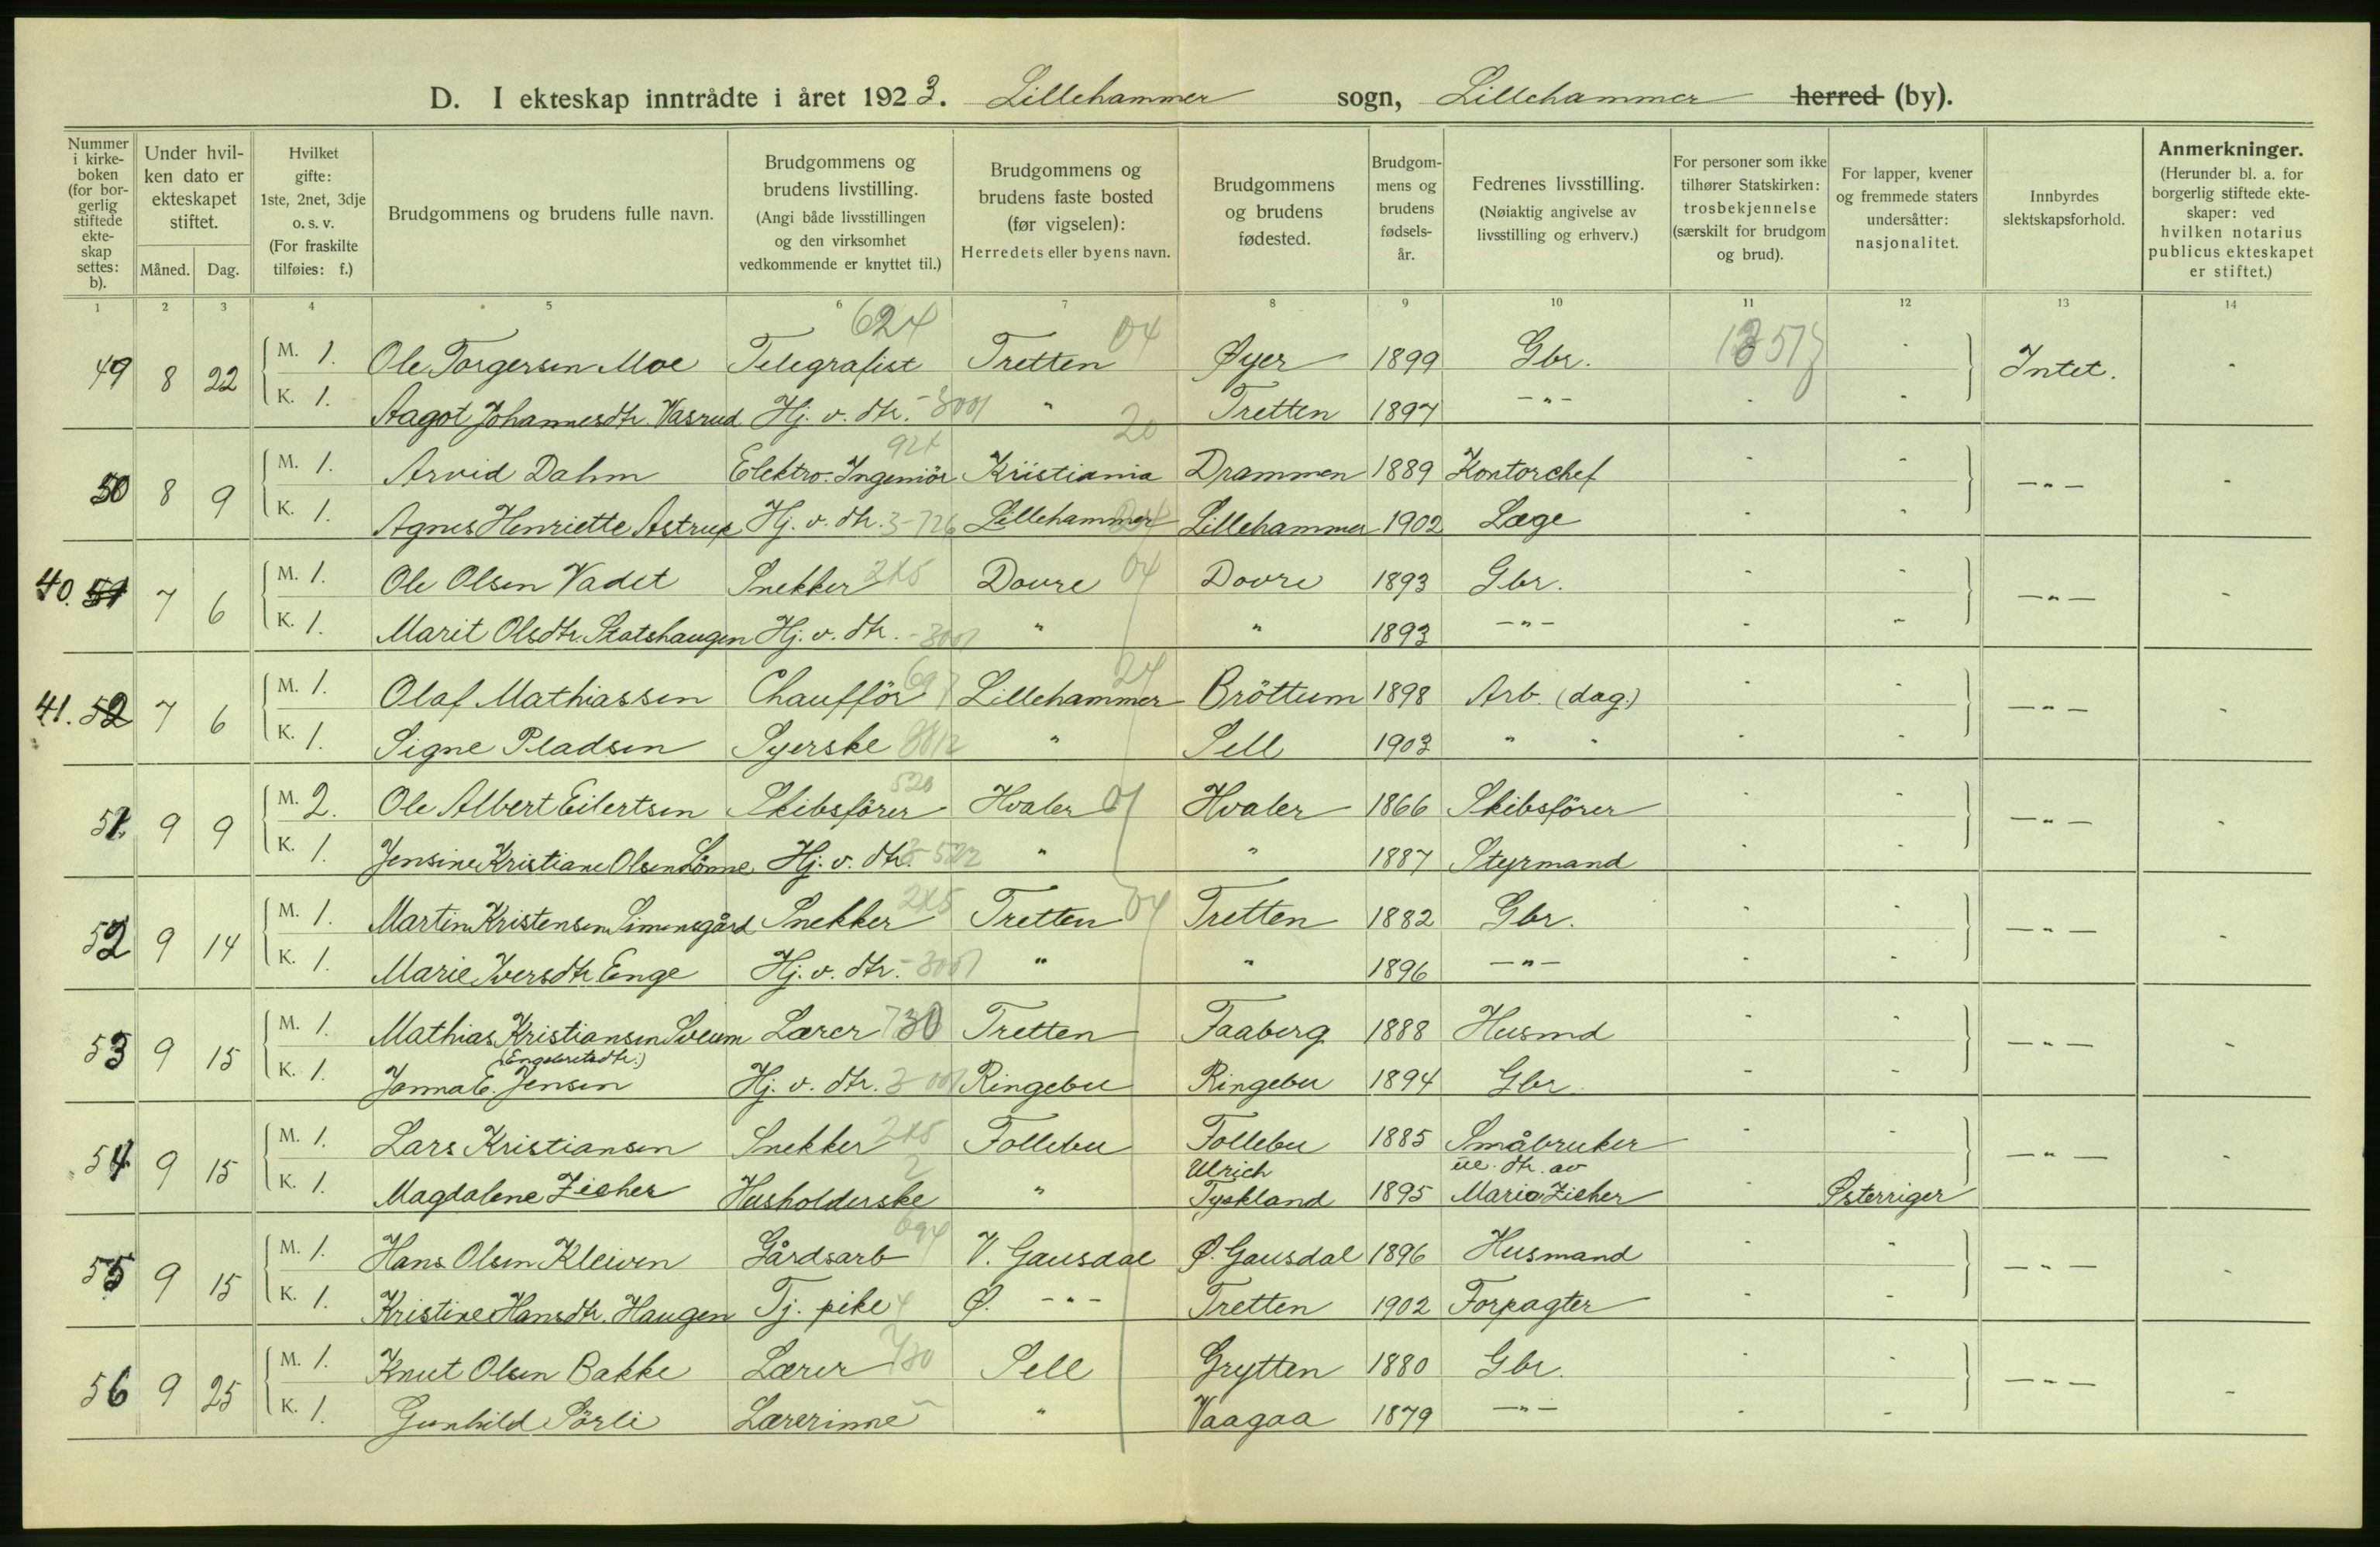 D. I ekteskap inntrådte i året 1923. Lillehammer sogn, Lillehammer herred (by).
Nummer i kirke-boken (for bor-gerlig stiftede ekte-skap settes: b).
Under hvil-ken dato er ekteskapet stiftet.
Måned. Dag.
Hvilket gifte: 1ste, 2net, 3dje o. s. v. (For fraskilte tilføies: f.)
Brudgommens og brudens fulle navn.
Brudgommens og brudens livstilling. (Angi både livsstillingen og den virksomhet vedkommende er knyttet til.)
Brudgommens og brudens faste bosted (før vigselen): Herredets eller byens navn.
Brudgommens og brudens fødested.
Brudgom-mens og brudens fødsels-år.
Fedrenes livsstilling. (Nøiaktig angivelse av livsstilling og erhverv.)
For personer som ikke tilhører Statskirken: trosbekjennelse (særskilt for brudgom og brud).
For lapper, kvener og fremmede staters undersåtter: nasjonalitet.
Innbyrdes slektskapsforhold.
Anmerkninger. (Herunder bl. a. for borgerlig stiftede ekte-skaper: ved hvilken notarius publicus ekteskapet er stiftet.)
1 2 3 4 5 6 7 8 9 10 11 12 13 14
624 04
49 8 22 M. 1. Ole Torgersen Moe Telegrafist Tretten Øyer 1899 Gbr. - Intet. -
K. 1. Aagot Johannesdtr. Vasrud Hj. v. dtr. -3001 " Tretten 1897 -"- - -
924 20
50 8 9 M. 1. Arvid Dahm Elektro. Ingeniör Kristiania Drammen 1889 Kontorchef - - -"- -
K. 1. Agnes Henriette Astrup Hj. v. dtr. 3-726 Lillehammer Lillehammer 1902 Læge - -
40. 51 7 6 M. 1. Ole Olsen Vadet Snekker 2X5 Dovre 04 Dovre 1893 Gbr. - - -"- -
K. 1. Marit Olsdtr. Statshaugen Hj. v. dtr. -3001 " " 1893 -"- - -
24
41. 52 7 6 M. 1. Olaf Mathiassen Chaufför Lillehammer Bröttum 1898 Arb. (dag.) - - -"- -
K. 1. Signe Pladsen Syerske " Sell 1903 " " - -
520
51 9 9 M. 2. Ole Albert Eilertsen Skibsförer Hvaler 01 Hvaler 1866 Skibsförer - - -"- -
K. 1. Jensine Kristiane Olsen Lönne Hj. v. dtr. " " 1887 Styrmand - -
52 9 14 M. 1. Martin Kristensen Simensgård Snekker 2X5 Tretten 04 Tretten 1882 Gbr. - - -"- -
K. 1. Marie Iversdtr Enge Hj. v. dtr. -3001 " " 1896 -"- - -
53 9 15 M. 1. Mathias Kristiansen Sveum Lærer 730 Tretten Faaberg 1888 Husmd - - -"- -
(Engebretsdtr.)
K. 1. Janna E. Jensen Hj. v. dtr. 3 001 Ringebu Ringebu 1894 Gbr. - -
54 9 15 M. 1. Lars Kristiansen Snekker 2X5 Follebu Follebu 1885 Småbruker - - -"- -
2 Ulrich ue. dtr. av
K. 1. Magdalene Zicher Husholderske " Tyskland 1895 Maria Zicher - Østerriger
694
55 9 15 M. 1. Hans Olsen Kleiven Gårdsarb V. Gausdal Ø. Gausdal 1896 Husmand - - -"- -
K. 1. Kristine Hansdtr. Haugen Tj. pike Ø. -"- Tretten 1902 Forpagter - -
56 9 25 M. 1. Knut Olsen Bakke Lærer 730 Sell Grytten 1880 Gbr. - - -"- -
K. 1. Gunhild Sörli Lærerinne " Vaagaa 1879 -"- - -